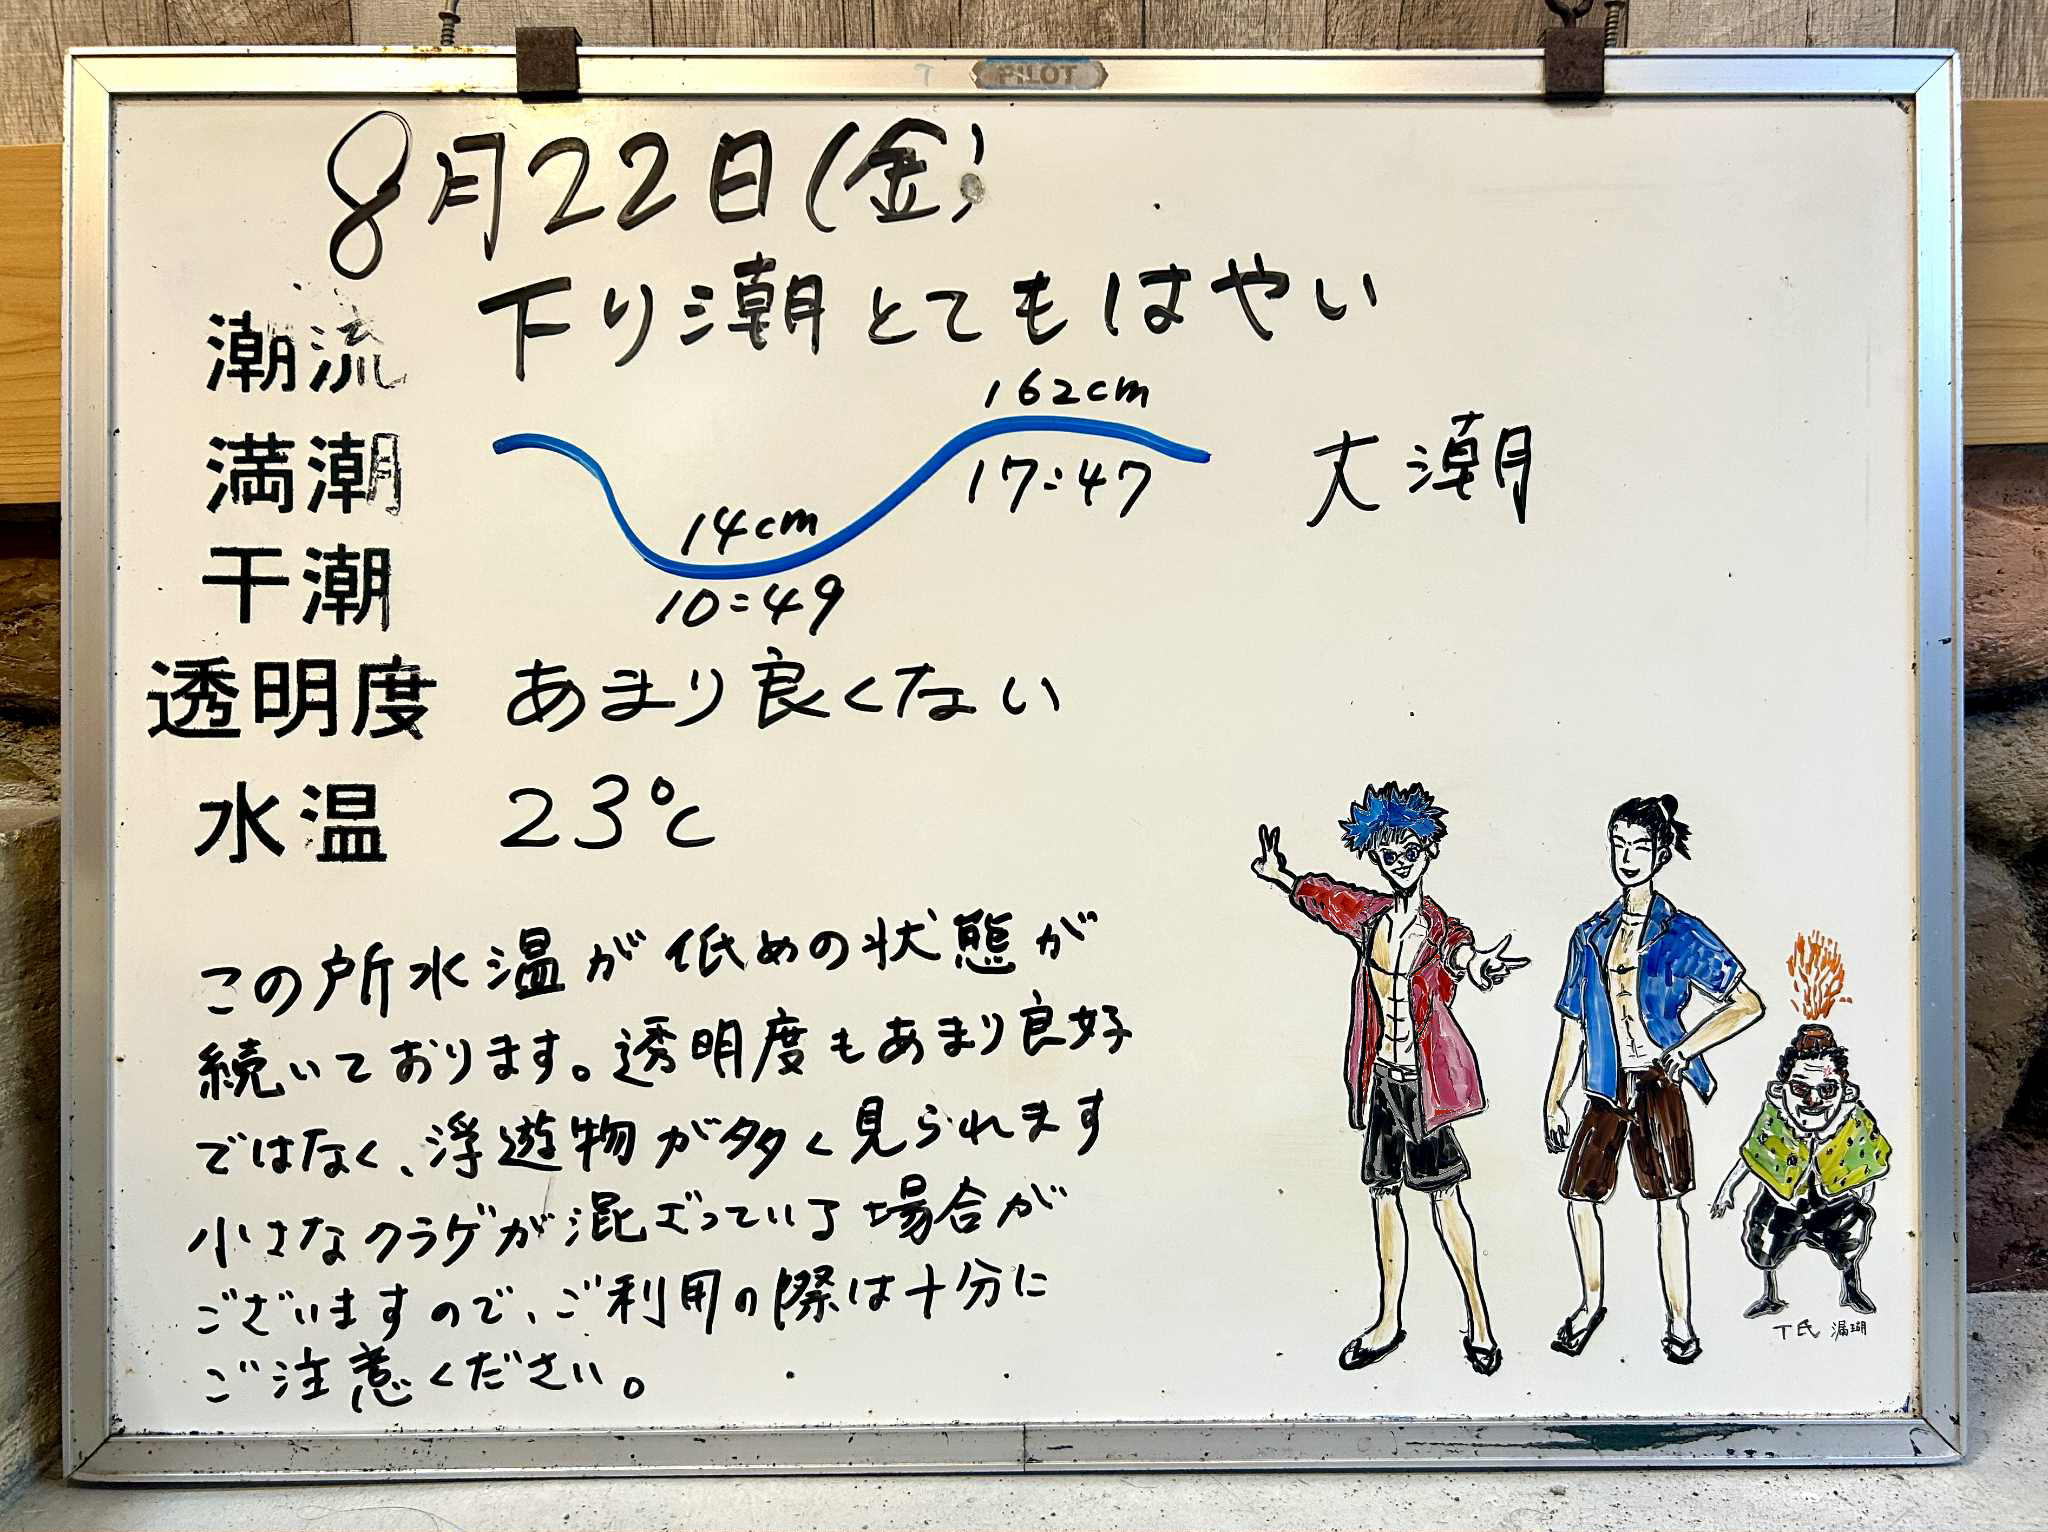 PILOT
8月22日(金)
潮流 下り潮とてもはやい
満潮 162cm 17:47 大潮
干潮 14cm 10:49
透明度 あまり良くない
水温 23℃
この所水温が低めの状態が
続いております。透明度もあまり良好
ではなく、浮遊物が多く見られます
小さなクラゲが混ざっている場合が
ございますので、ご利用の際は十分に
ご注意ください。
T氏 漏瑚